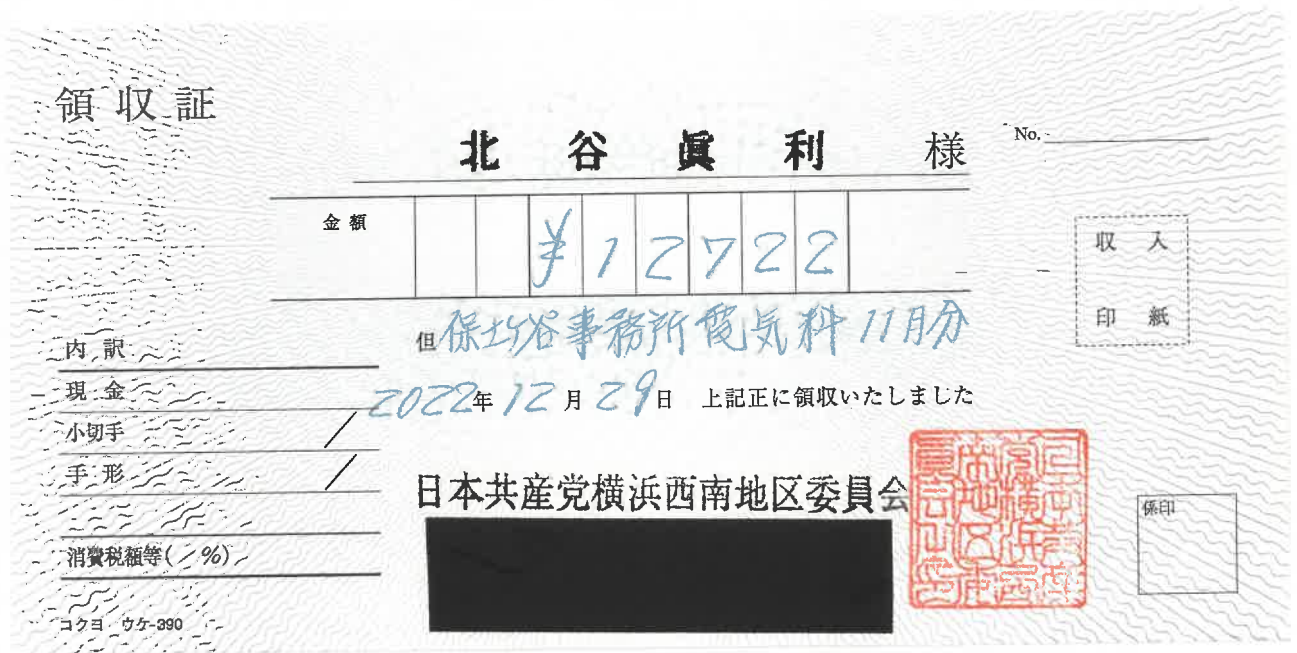 領収証
北谷眞利 様
No.
金額 ¥12722
収入
印紙
但 保土ケ谷事務所電気料 11月分
2022年12月29日 上記正に領収いたしました
内訳
現金
小切手 /
手形 /
消費税額等( / %)
日本共産党横浜西南地区委員会
係印
コクヨ ウケ-390